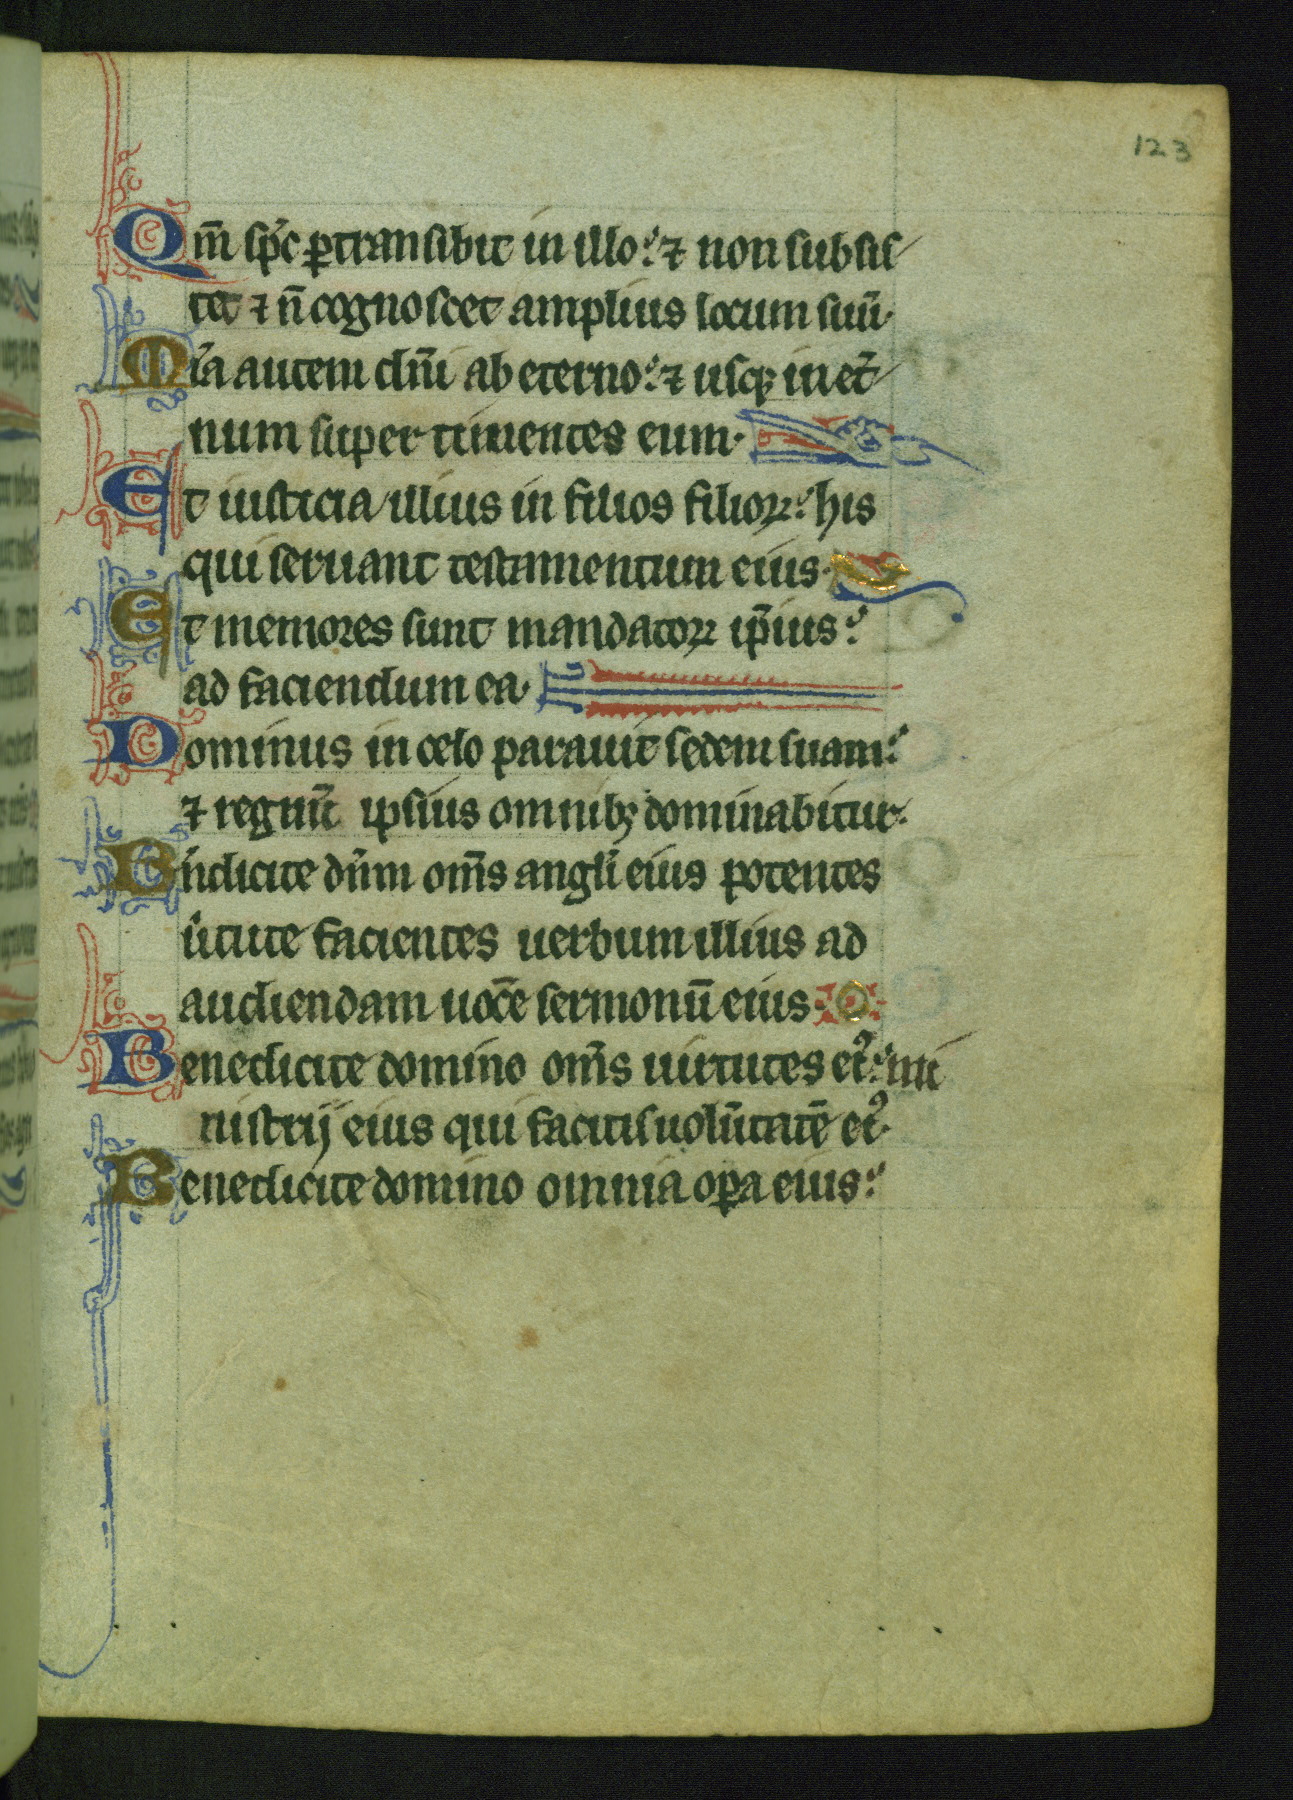 123
Qm̄ sp̄c ꝑtransibit in illo: ⁊ non subsis
tet ⁊ n̄ cognoscet amplius locum suū.
Mīa autem dn̄i ab eterno: ⁊ usqꝫ in et̄
num super timentes eum.
Et iusticia illius in filios filioꝝ: his
qui seruant testamentum eius.
Et memores sunt mandatoꝝ ip̄ius:
ad faciendum ea.
Dominus in celo parauit sedem suam:
⁊ regnū ipsius omnibꝫ dominabitur.
Bn̄dicite dn̄m om̄s angl̄i eius potentes
ũtute facientes uerbum illius ad
audiendam uocē sermonū eius.
Benedicite domino om̄s uirtutes eiꝰ: mi
nistrij eius qui facitis uolūtatē eiꝰ.
Benedicite domino omnia oꝑa eius: